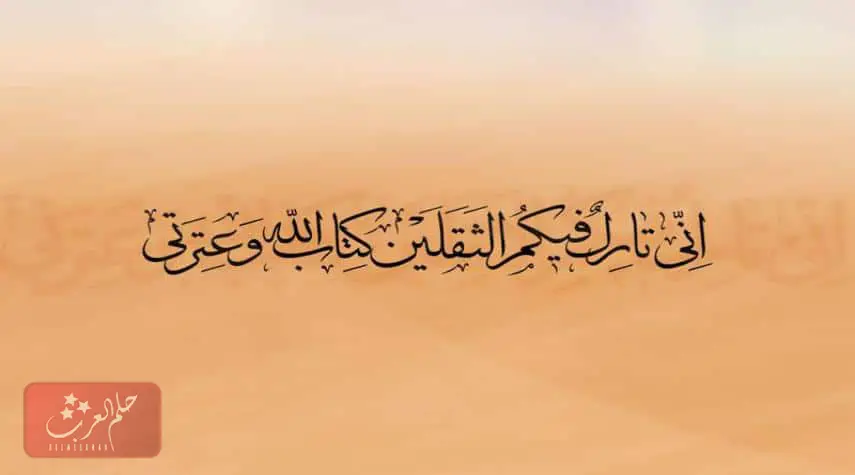 اِنّي تارِكٌ فيكُمُ الثَقَلَيْن كِتابَ اللّٰه وَعِترَتى
حلم العرب